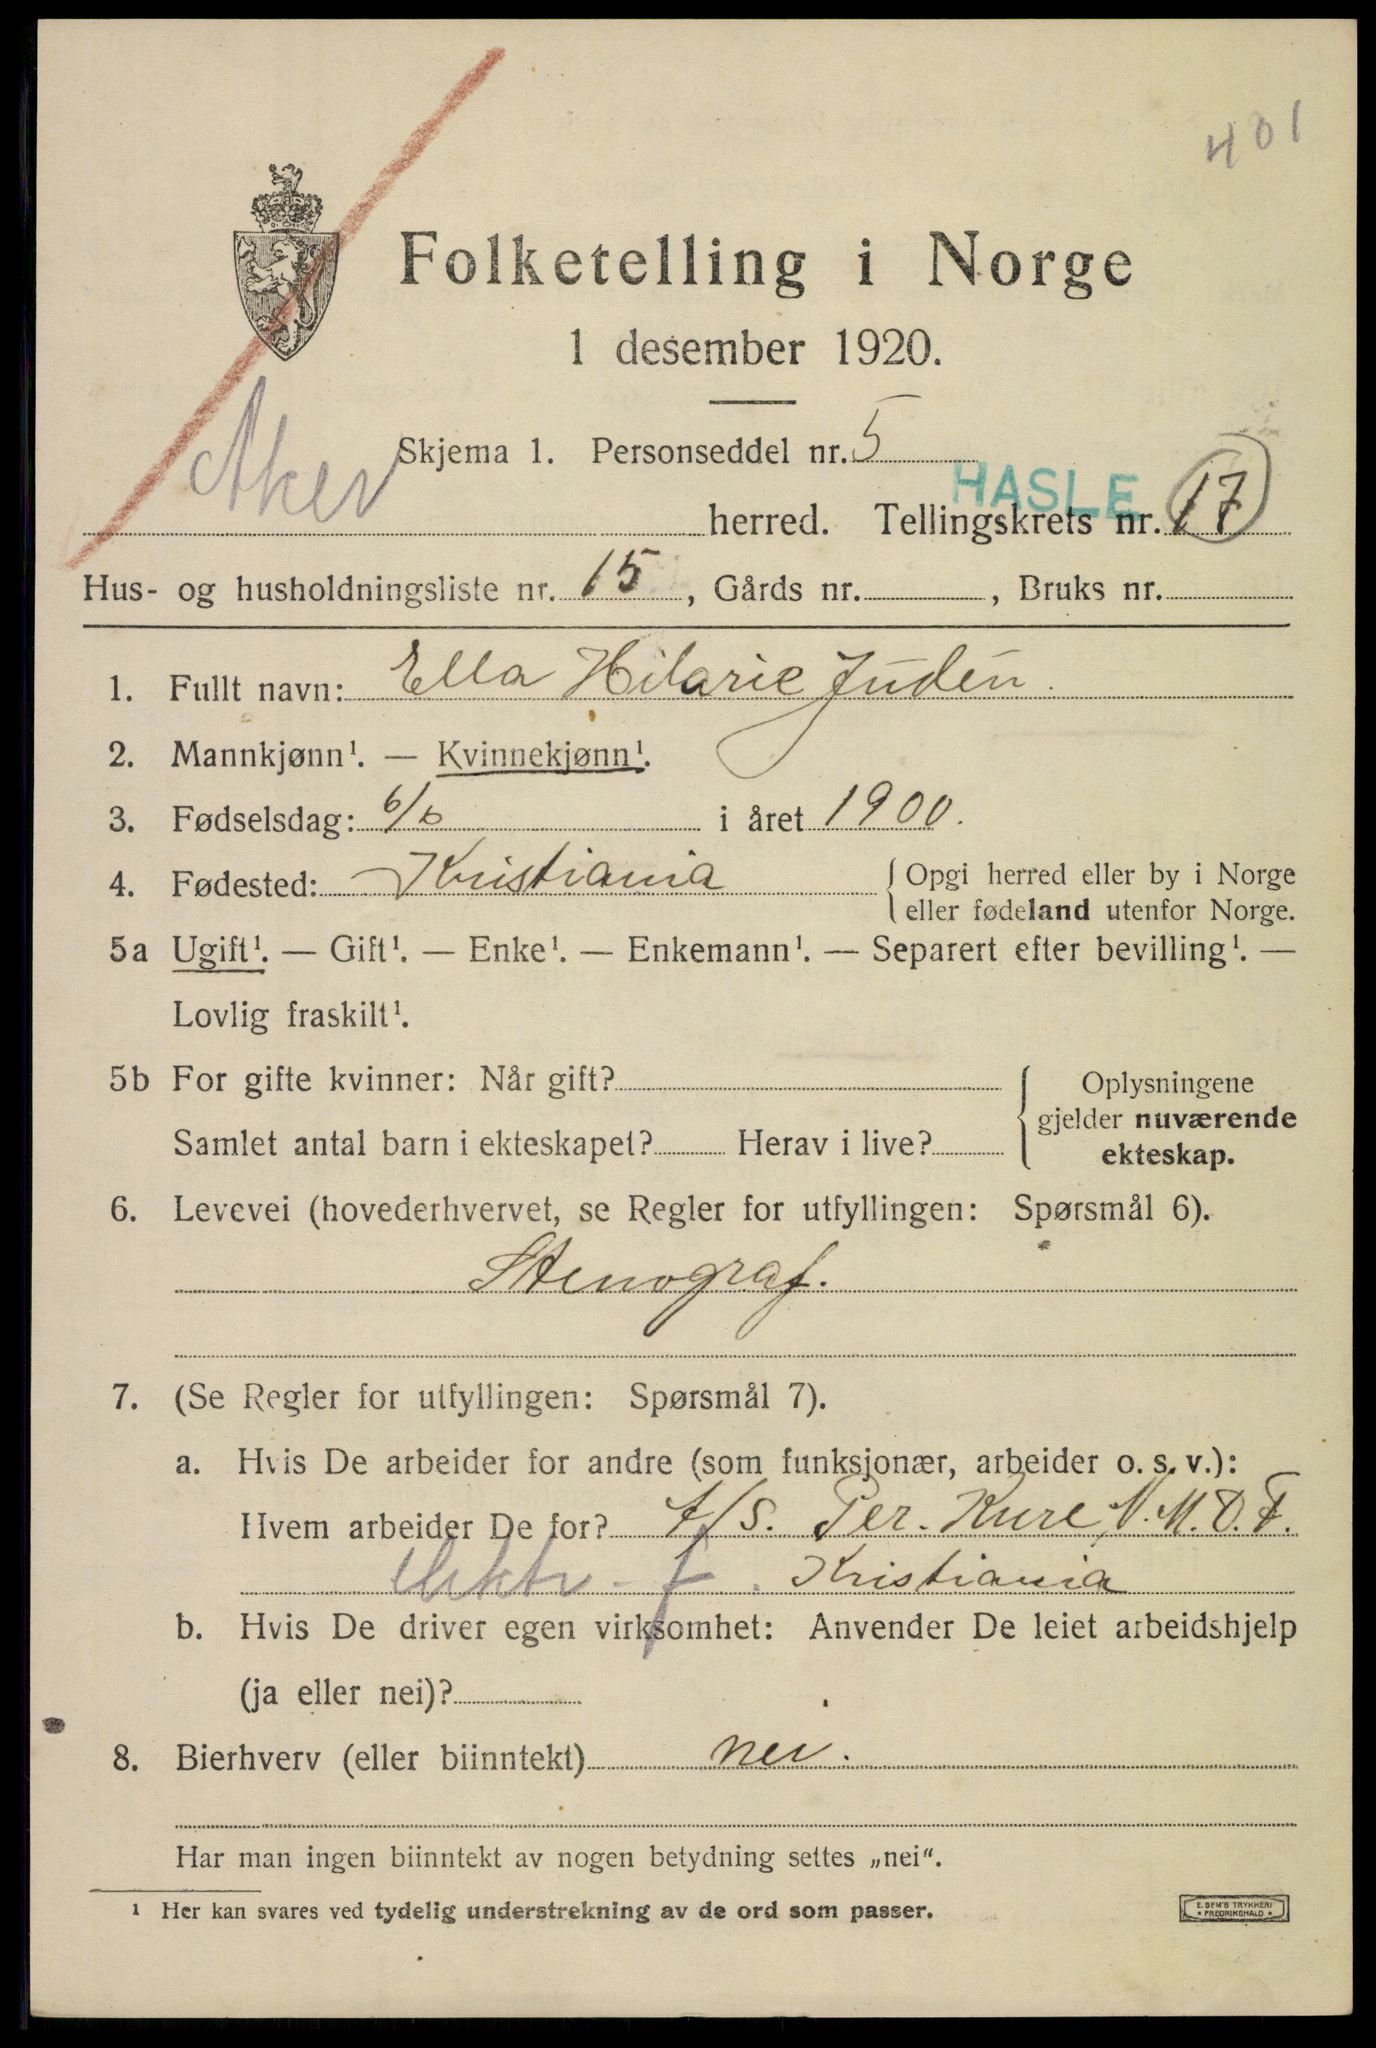 401
Folketelling i Norge
1 desember 1920.
Skjema 1. Personseddel nr. 5
HASLE
Aker herred. Tellingskrets nr. 17
Hus- og husholdningsliste nr. 15, Gårds nr. , Bruks nr.
1. Fullt navn: Ella Hilarie Judén.
2. Mannkjønn¹. — Kvinnekjønn¹.
3. Fødselsdag: 6/6 i året 1900.
4. Fødested: Kristiania { Opgi herred eller by i Norge
eller fødeland utenfor Norge.
5a Ugift¹. — Gift¹. — Enke¹. — Enkemann¹. — Separert efter bevilling¹. —
Lovlig fraskilt¹.
5b For gifte kvinner: Når gift? { Oplysningene
gjelder nuværende
Samlet antal barn i ekteskapet? Herav i live?
ekteskap.
6. Levevei (hovederhvervet, se Regler for utfyllingen: Spørsmål 6).
Stenograf.
7. (Se Regler for utfyllingen: Spørsmål 7).
a. Hvis De arbeider for andre (som funksjonær, arbeider o. s. v.):
Hvem arbeider De for? A/S. Per. Kure, N. M. D. F.
elektr. f. Kristiania
b. Hvis De driver egen virksomhet: Anvender De leiet arbeidshjelp
(ja eller nei)?
8. Bierhverv (eller biinntekt) nei.
Har man ingen biinntekt av nogen betydning settes „nei“.
¹ Her kan svares ved tydelig understrekning av de ord som passer.
E. SEM'S TRYKKERI
• FREDRIKSHALD •